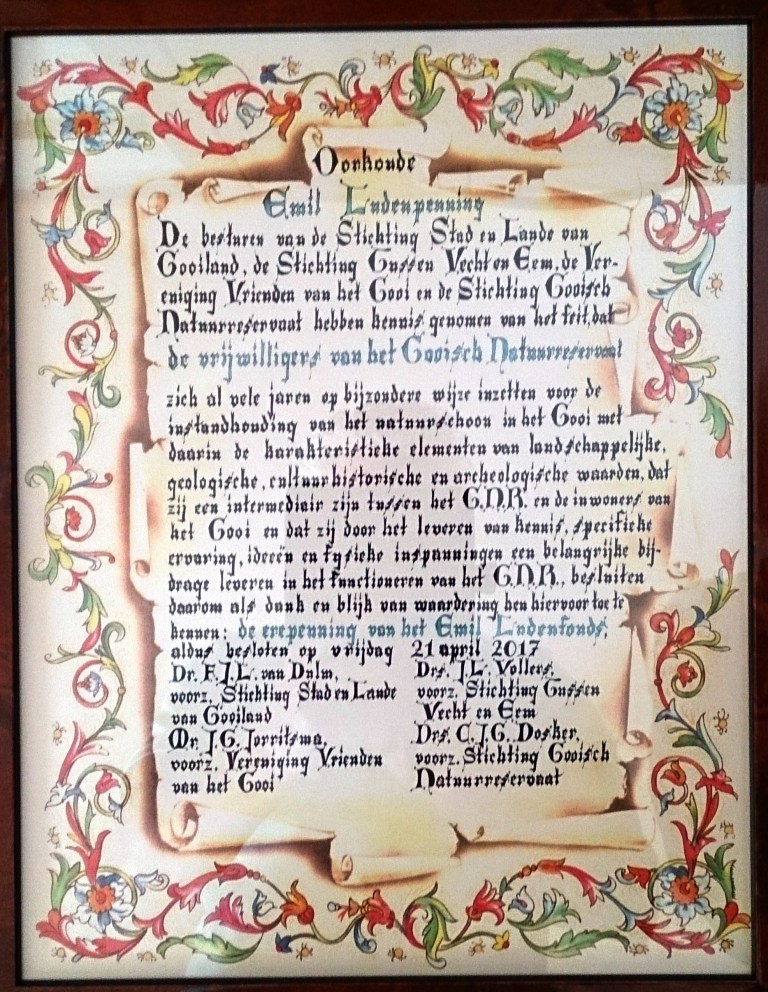 Oorkonde
Emil Ludenpenning
De besturen van de Stichting Stad en Lande van
Gooiland, de Stichting Tussen Vecht en Eem, de Ver-
eniging Vrienden van het Gooi en de Stichting Gooisch
Natuurreservaat hebben kennis genomen van het feit, dat
de vrijwilligers van het Gooisch Natuurreservaat
zich al vele jaren op bijzondere wijze inzetten voor de
instandhouding van het natuurschoon in het Gooi met
daarin de karakteristieke elementen van landschappelijke,
geologische, cultuurhistorische en archeologische waarden, dat
zij een intermediair zijn tussen het G.N.R. en de inwoners van
het Gooi en dat zij door het leveren van kennis, specifieke
ervaring, ideeën en fysieke inspanningen een belangrijke bij-
drage leveren in het functioneren van het G.N.R., besluiten
daarom als dank en blijk van waardering hen hiervoor toe te
kennen: de erepenning van het Emil Ludenfonds,
aldus besloten op vrijdag 21 april 2017
Dr. F.J.L. van Dulm, Drs. J.L. Vollers,
voorz. Stichting Stad en Lande voorz. Stichting Tussen
van Gooiland Vecht en Eem
Mr. J.G. Jorritsma, Drs. C.J.G. Dosker,
voorz. Vereniging Vrienden voorz. Stichting Gooisch
van het Gooi Natuurreservaat